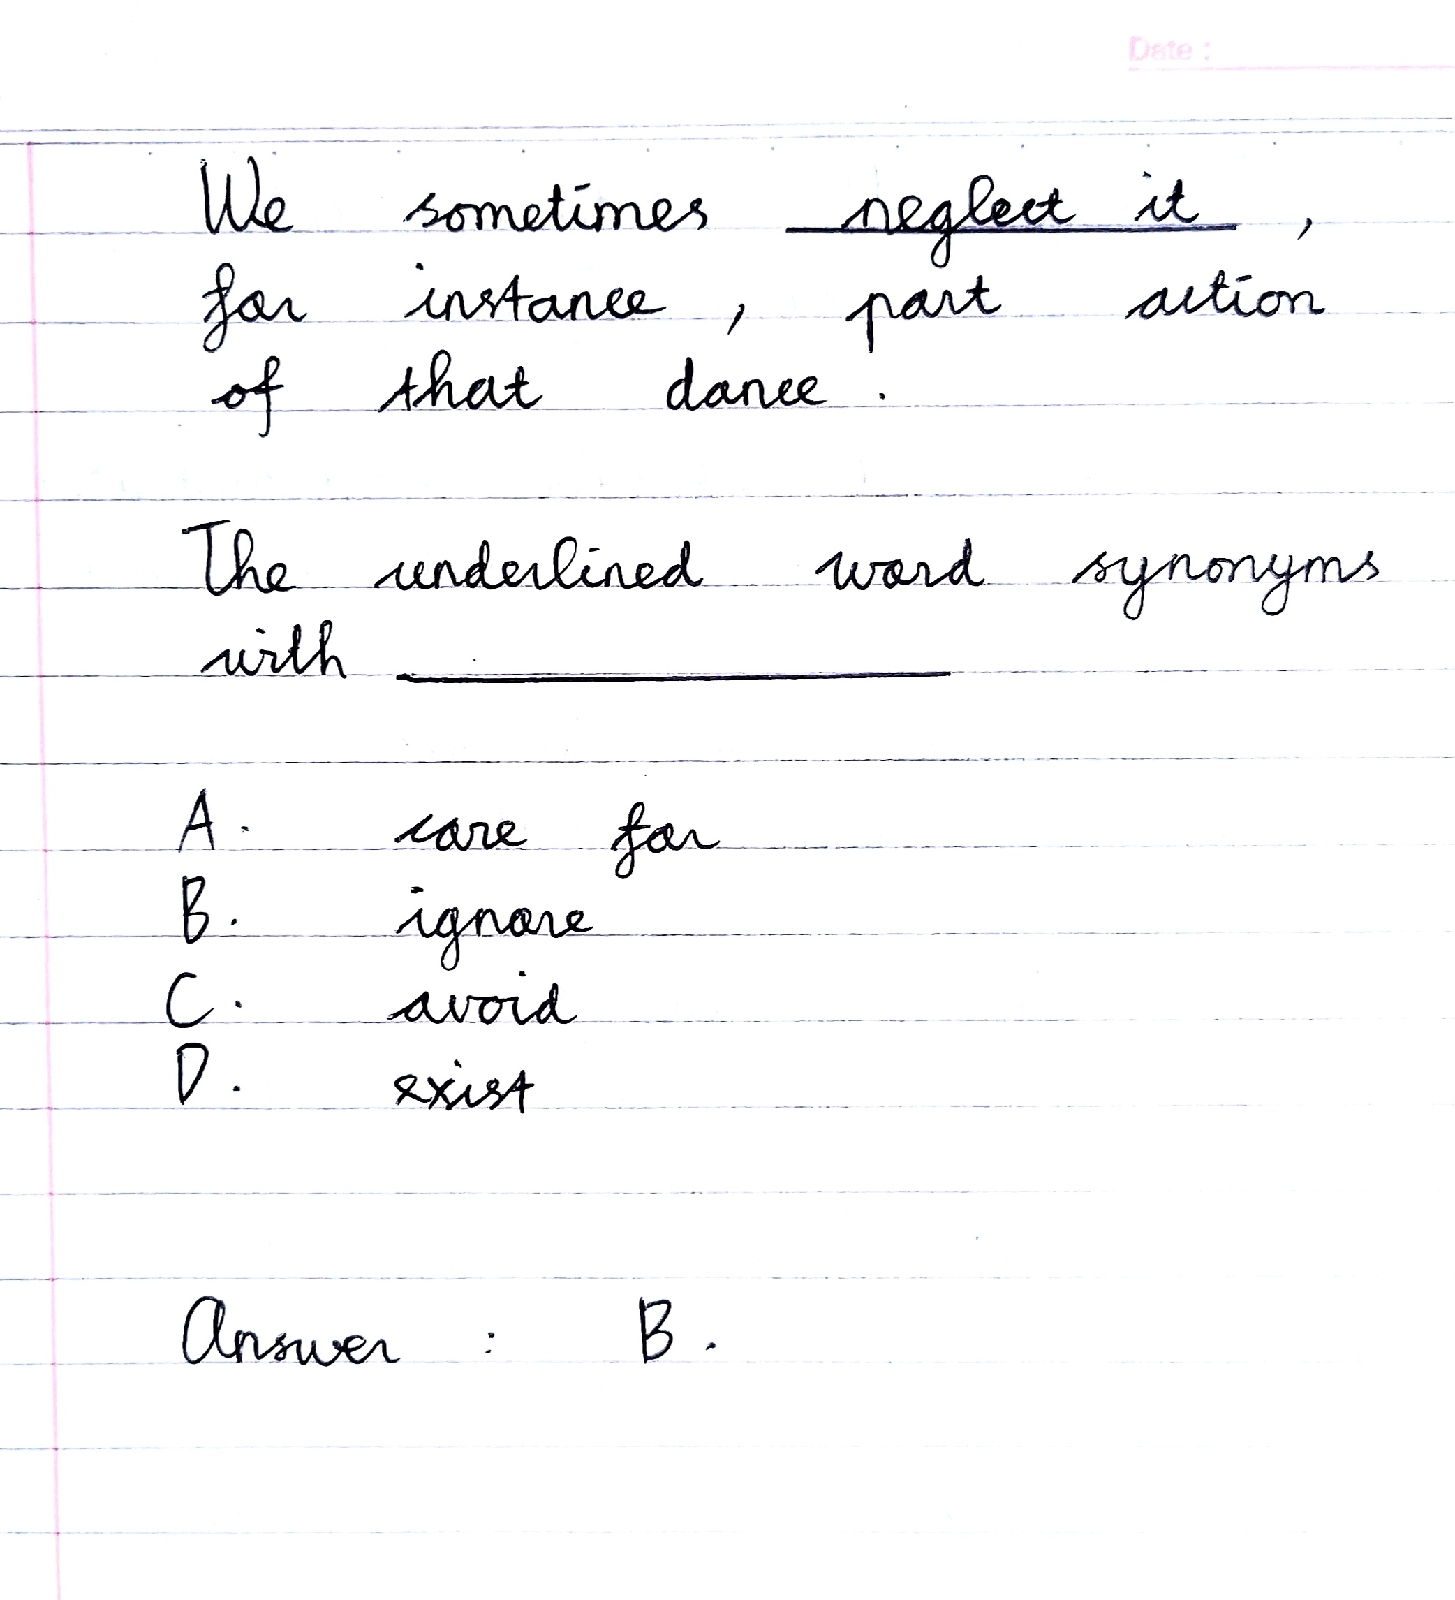 Date :
We sometimes neglect it ,
for instance , part action
of that dance .
The underlined word synonyms
with
A. care for
B. ignore
C. avoid
D. exist
Answer : B.